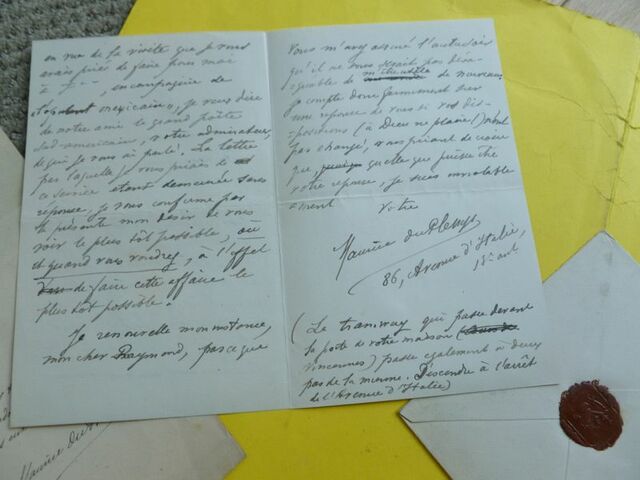 en vue de la visite que je vous
avais prié de faire pour moi
à , en compagnie de
mexicain, je veux dire
de notre ami le grand poète
sud-américain, votre admirateur,
de qui je vous ai parlé. La lettre
par laquelle je vous priais
ce service étant demeurée sans
réponse, je vous confirme par
la présente mon désir de vous
voir le plus tôt possible, où
et quand vous voudrez, à l'effet
de faire cette affaire le
plus tôt possible.
Je renouvelle mon instance,
mon cher Raymond, parce que
Vous m'avez assuré l'autre fois
qu'il ne vous serait pas désa-
gréable de m'être utile de nouveau,
je compte donc fermement sur
une réponse de vous si vos dis-
positions (à Dieu ne plaise !) n'ont
pas changé, vous priant de croire
que quelle que puisse être
votre réponse, je suis immuable
ament Votre
Maurice du Plessys
86, Avenue d'Italie,
13e arrt
(Le tramway qui passe devant
la porte de votre maison
Vincennes) passe également à deux
pas de la mienne. Descendre à l'arrêt
de l'Avenue d'Italie)
Maurice du